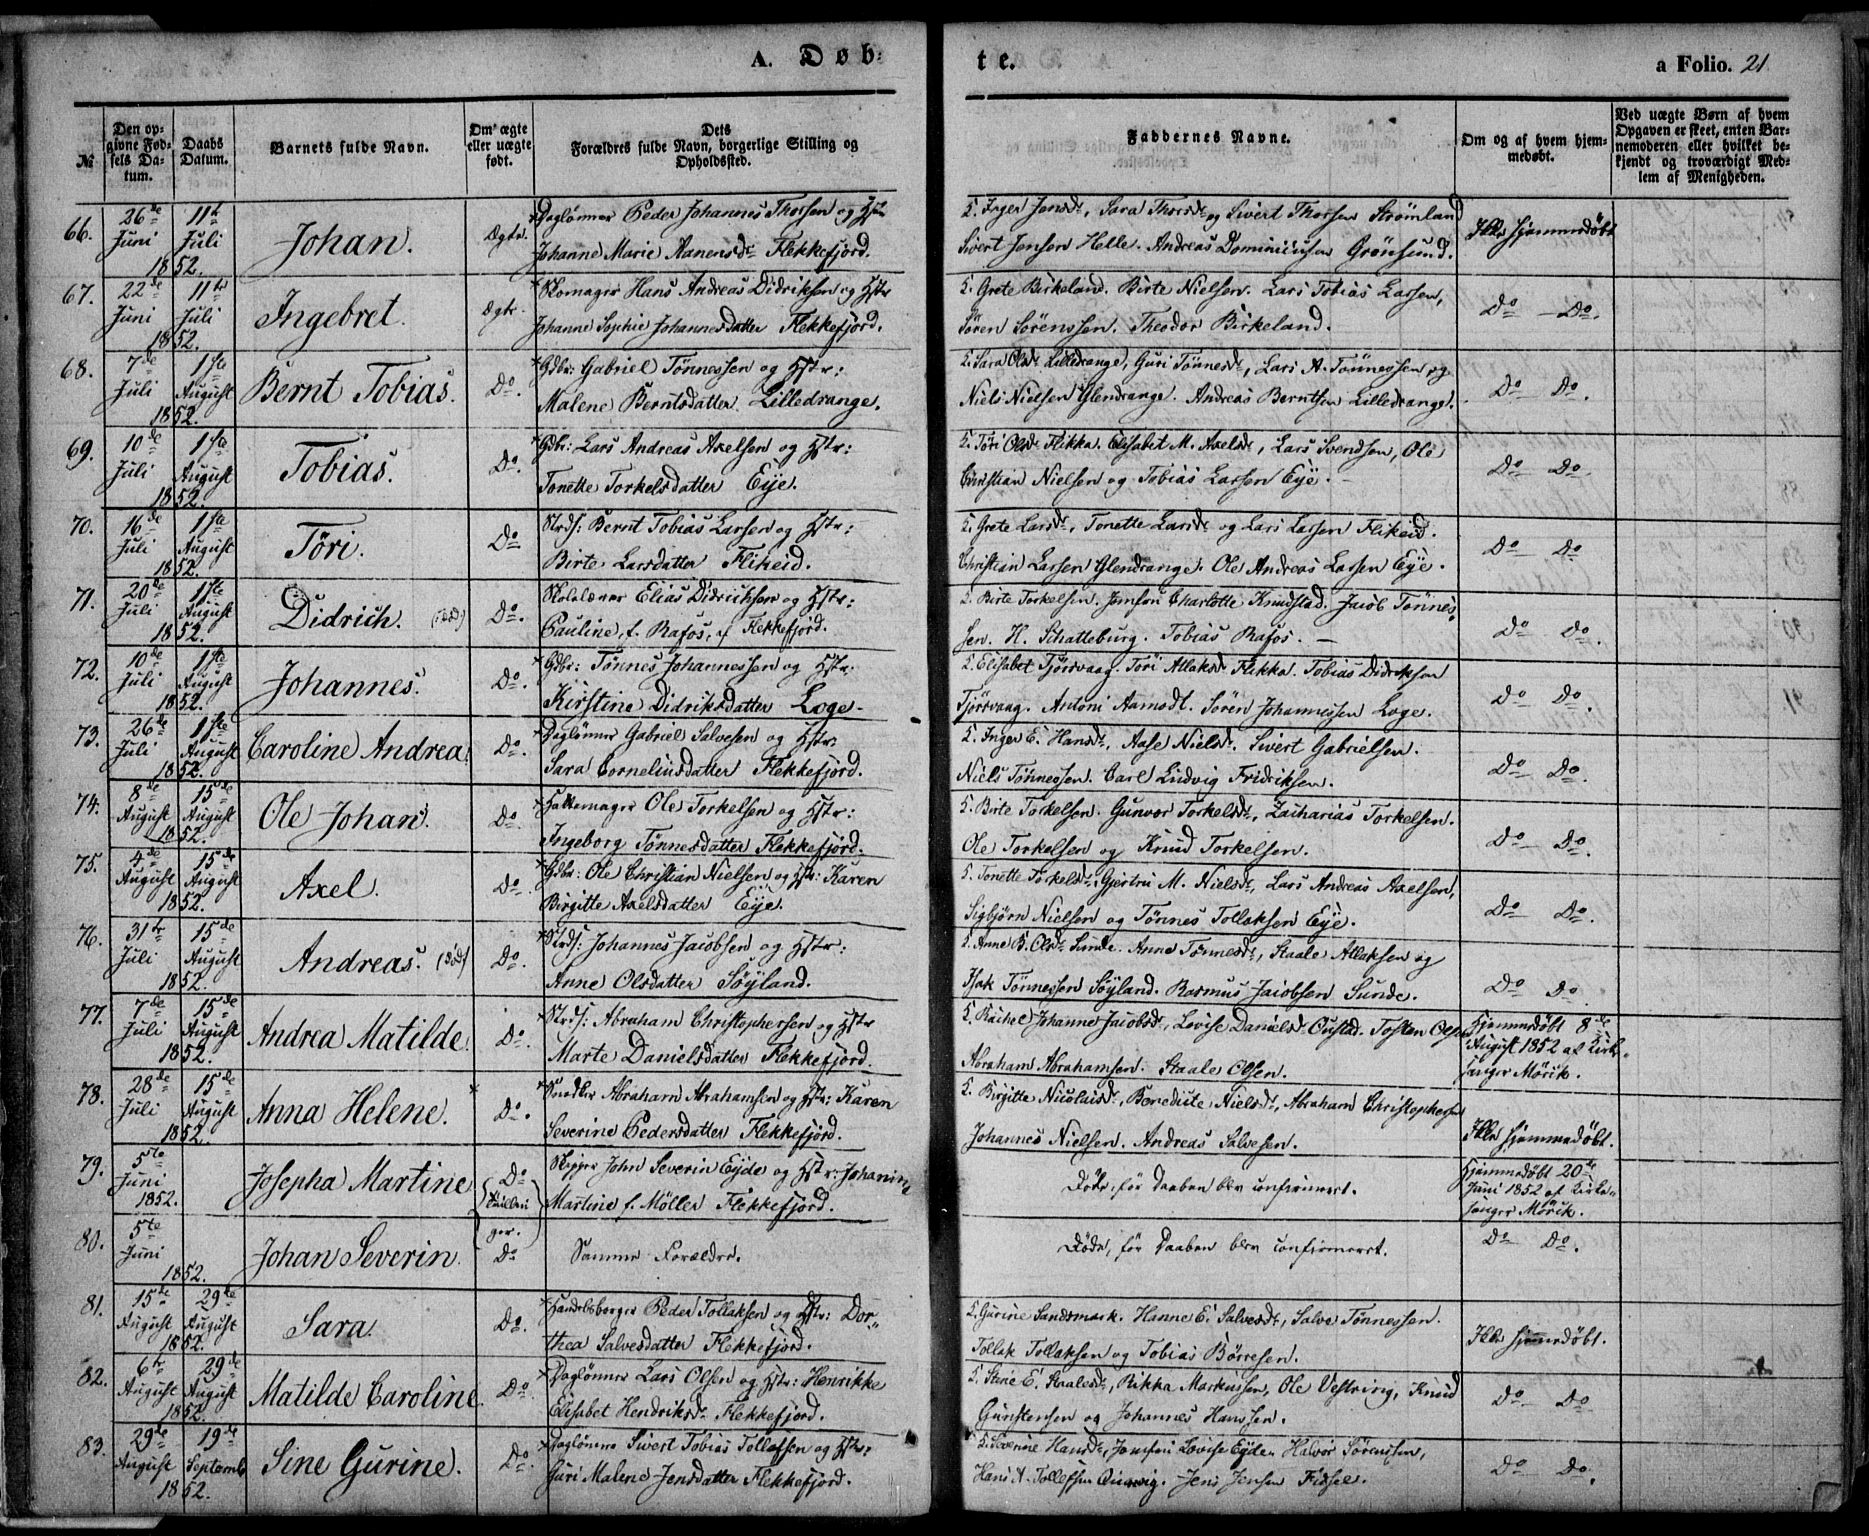 A. Døb-
te.
a Folio. 21
№
Den opgivne Fødsels Datum.
Daabs Datum.
Barnets fulde Navn.
Om ægte eller uægte født.
Dets Forældres fulde Navn, borgerlige Stilling og Opholdssted.
Faddernes Navne.
Om og af hvem hjemmedøbt.
Ved uægte Børn af hvem Opgaven er skeet, enten Barnemoderen eller hvilket bekjendt og troværdigt Medlem af Menigheden.
66. 26de Juni 11te Juli 1852. Johan. Ægte. Daglønner Peder Johannes Thorsen og Hstr
Johanne Marie Aanensdr Flekkefjord.
K. Inger Jensdr, Sara Thorsdr og Sivert Thorsen Strömland
Sivert Jensen Helle. Andreas Dominicusen Grönsund.
Ikke hjemmedöbt
67. 22de Juni 11te Juli 1852. Ingebret. Ægte. Skomager Hans Andreas Didriksen og Hstr
Johanne Sophie Johannesdatter Flekkefjord.
K. Grete Birkeland. Birte Nielsen. Lars Tobias Larsen,
Sören Sörenssen. Theodor Birkeland.
Do — Do.
68. 7de Juli 1ste August 1852. Bernt Tobias. Do. Gdbr: Gabriel Tönnessen og Hstr:
Malene Berntsdatter Lilledrange.
K. Sara Olsdr Lilledrange, Guri Tönnesdr, Lars A. Tönnessen og
Niels Nielsen Glendrange. Andreas Berntsen Lilledrange.
Do Do.
69. 10de Juli 1ste August 1852. Tobias. Do. Gdbr: Lars Andreas Axelsen og Hstr:
Tonette Torkelsdatter Eÿe.
K. Töri Olsdr Flikka. Elisabet M. Axelsdr, Lars Svendsen, Ole
Christian Nielsen og Tobias Larsen Eÿe.
Do Do.
70. 16de Juli 1ste August 1852. Töri. Do Strds: Bernt Tobias Larsen og Hstr:
Birte Larsdatter Flikeid.
K. Grete Larsdr, Tonette Larsdr og Lars Larsen Flikeid.
Christian Larsen Glendrange. Ole Andreas Larsen Eÿe.
Do Do.
71. 20de Juli 1ste August 1852. Didrich. (död) Do. Skolelærer Elias Didricksen og Hstr:
Pauline, f. Rafos, Flekkefjord.
K. Birte Torkelsen. Jomfru Charlotte Knudstad. Jacob Tönnes-
sen. H. Schatteburg. Tobias Rafos.
Do Do.
72. 10de Juli 1ste August 1852. Johannes. Do. Gdbr: Tönnes Johannessen og Hstr.
Kirstine Didriksdatter Loge.
K. Elisabet Tjörsvaag. Töri Atlaksdr Flikka. Tobias Didriksen
Tjörsvaag. Antoni Aamodt. Sören Johannessen Loge.
Do Do.
73. 26de Juli 1ste August 1852. Caroline Andrea. Do. Daglönner Gabriel Salvesen og Hstr:
Sara Corneliusdatter Flekkefjord.
K. Inger E. Hansdr, Aase Nielsdr. Sivert Gabrielsen.
Niels Tönnessen. Carl Ludvig Fridriksen.
Do Do.
74. 8de August 15de August 1852. Ole Johan. Do. Hattemager Ole Torkelsen og Hstr:
Ingeborg Tönnesdatter Flekkefjord.
K. Birte Torkelsen. Gunvor Torkelsdr, Zacharias Torkelsen.
Ole Torkelsen og Knud Torkelsen.
Do Do.
75. 4de August 15de August 1852. Axel. Do. Gdbr: Ole Christian Nielsen og Hstr: Karen
Birgitte Axelsdatter Eÿe.
K. Tonette Torkelsdr, Gjertru M. Nielsdr, Lars Andreas Axelsen,
Sigbjörn Nielsen og Tönnes Tollaksen Eÿe.
Do Do.
76. 31te Juli 15de August 1852. Andreas. (död) Do. Strds: Johannes Jacobsen og Hstr:
Anne Olsdatter Söÿland.
K. Anne B. Olsdr Sunde. Anne Tönnesdr, Staale Atlaksen og
Isak Tönnessen Söÿland. Rasmus Jacobsen Sunde.
Do Do.
77. 7de Juli 15de August 1852. Andrea Matilde. Do. Strds: Abraham Christophersen og Hstr
Marte Danielsdatter Flekkefjord.
K. Rachel Johanne Jacobsdr, Lovise Danielsdr Oustad. Tosten Olsen
Abraham Abrahamsen. Staale Olsen.
Hjemmedöbt 8de August 1852 af Kirke-
sanger Mörik.
78. 28de Juli 15de August 1852. Anna Helene. Do. Snedker Abraham Abrahamsen og Hstr: Karen
Severine Pedersdatter Flekkefjord.
K. Birgitte Nicolaisdr, Benedicte Nielsdr, Abraham Christophersen
Johannes Nielsen. Andreas Salvesen.
Ikke hjemmedöbt.
79. 5te Juni 1852. Josepha Martine Do (Tvillinger.) Skipper John Severin Eyde og Hstr: Johanne
Martine f. Möller Flekkefjord.
Döde, för Daaben blev confirmeret.
Hjemmedöbt 20de Juni 1852 af Kirke-
sanger Mörik.
80. 5te Juni 1852. Johan Severin. Do Samme Forældre.
Döde, för Daaben blev confirmeret.
Do Do.
81. 15de August 29de August 1852. Sara. Do. Handelsborger Peder Tollaksen og Hstr: Dor-
thea Salvesdatter Flekkefjord.
K. Gurine Sandsmark. Hanne E. Salvesdr, Salve Tönnessen.
Tollak Tollaksen og Tobias Börresen.
Ikke hjemmedöbt.
82. 6te August 29de August 1852. Matilde Caroline. Do. Daglönner Lars Olsen og Hstr: Henrikke
Elisabet Hendriksdr Flekkefjord.
K. Stine E. Staalesdr, Rikka Markussen, Ole Vestring, Knud
Gunstensen og Johannes Hanssen.
Do Do
83. 29de August 19de Septemb 1852. Sine Gurine. Do. Daglönner Sivert Tobias Tollefsen og Hstr:
Guri Malene Jensdatter Flekkefjord.
K. Severine Hansdr, Jomfru Lovise Eyde. Halvor Sörenssen,
Hans A. Tollefsen. Jens Jensen Fidsel.
Do Do.